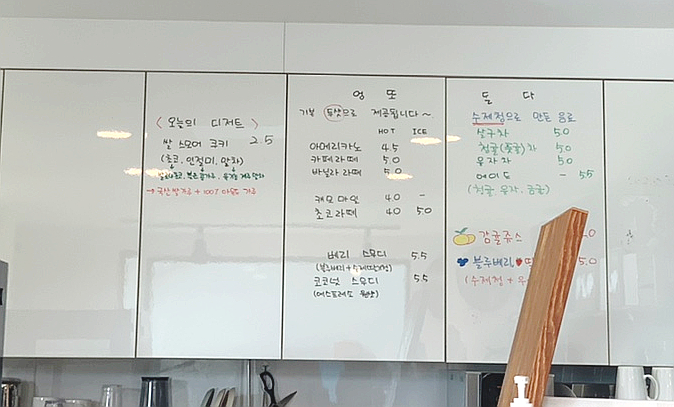 <오늘의 디저트>
쌀 스모어 쿠키 2.5
(초코, 인절미, 말차)
→국산쌀가루 + 100%
엉또
기본 투샷으로 제공됩니다~
HOT ICE
아메리카노 4.5
카페라떼 5.0
바닐라 라떼 5.0
캐모마일 4.0 -
초코라떼 4.0 5.0
베리 스무디 5.5
코코넛 스무디 5.5
(에스프레소 원샷)
도 다
수제청으로 만든 음료
살구차 5.0
청귤(풋귤)차 5.0
유자차 5.0
에이드 - 5.5
(청귤, 유자, 금귤)
감귤쥬스
블루베리, 5.0
(수제청 +